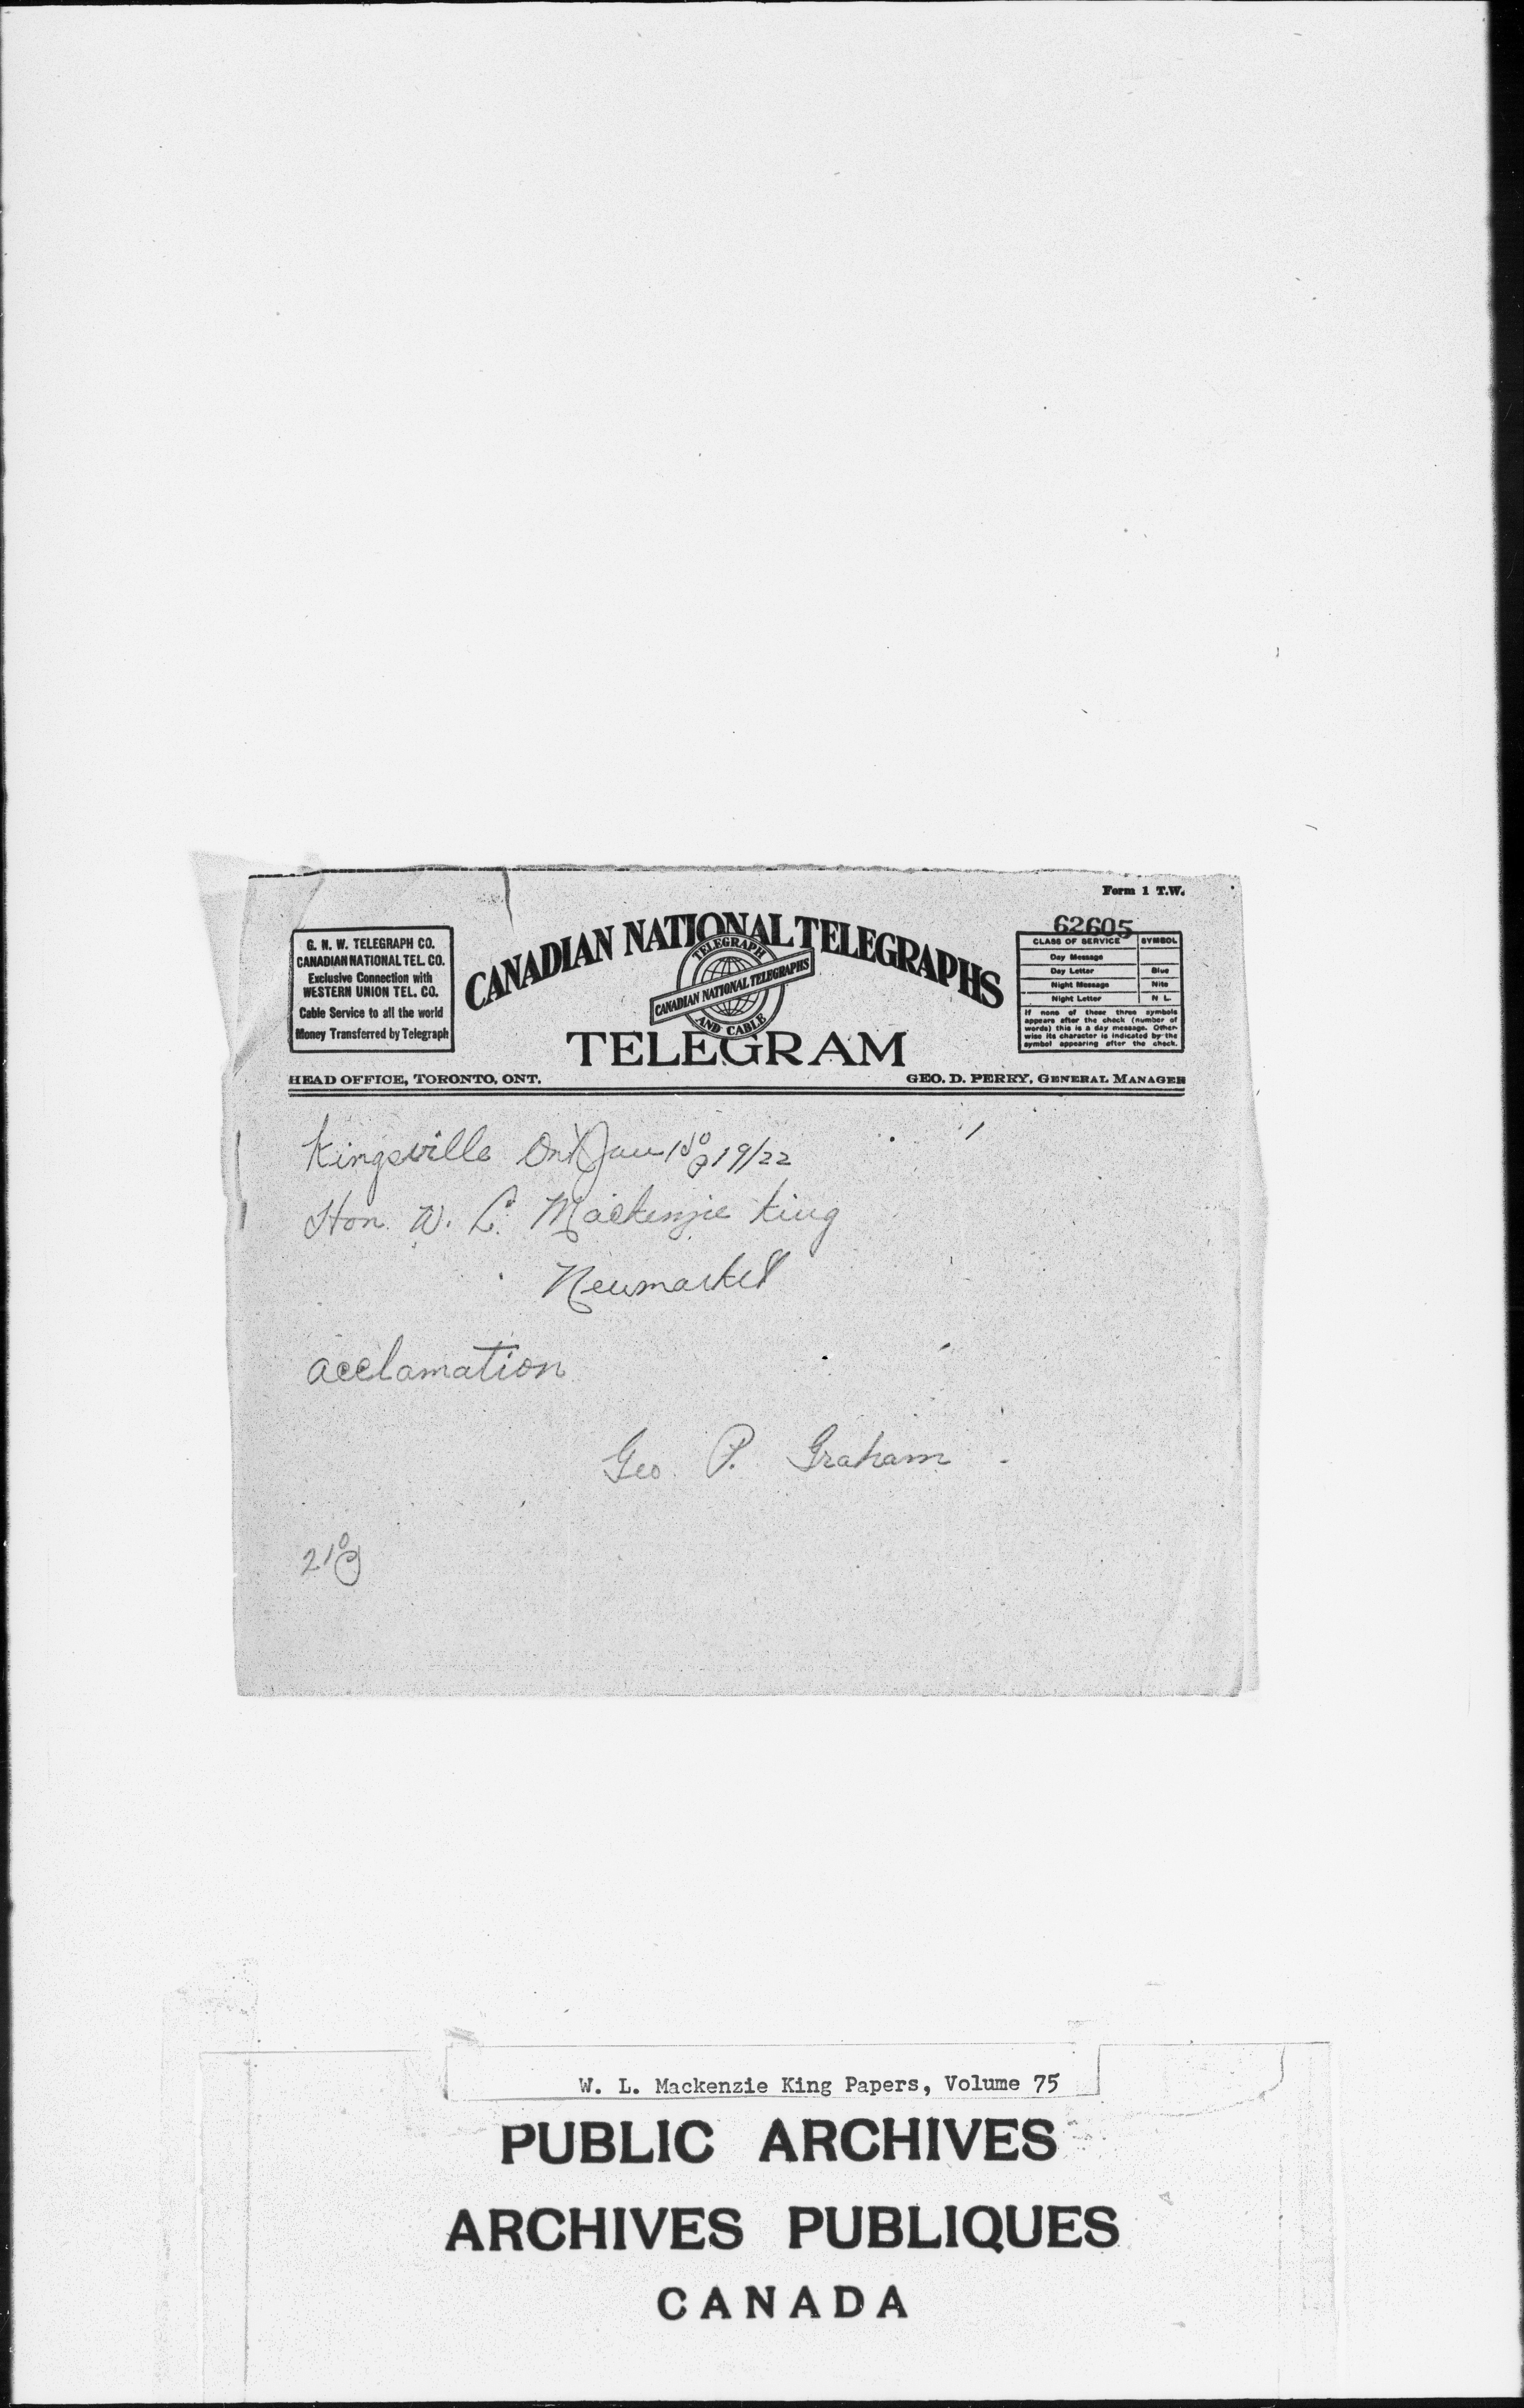 Form 1 T.W.
62605
G. N. W. TELEGRAPH CO.
CANADIAN NATIONAL TEL. CO.
Exclusive Connection with
WESTERN UNION TEL. CO.
Cable Service to all the world
Money Transferred by Telegraph
CANADIAN NATIONAL TELEGRAPHS
TELEGRAPH
CANADIAN NATIONAL TELEGRAPHS
AND CABLE
TELEGRAM
CLASS OF SERVICE SYMBOL
Day Message
Day Letter Blue
Night Message Nite
Night Letter N L
If none of these three symbols
appears after the check (number of
words) this is a day message. Other-
wise its character is indicated by the
symbol appearing after the check.
HEAD OFFICE, TORONTO, ONT.
GEO. D. PERRY, GENERAL MANAGER
Kingsville Ont Jan 19/22
Hon. W. L. Mackenzie King
Newmarket
acclamation
Geo. P. Graham
W. L. Mackenzie King Papers, Volume 75
PUBLIC ARCHIVES
ARCHIVES PUBLIQUES
CANADA